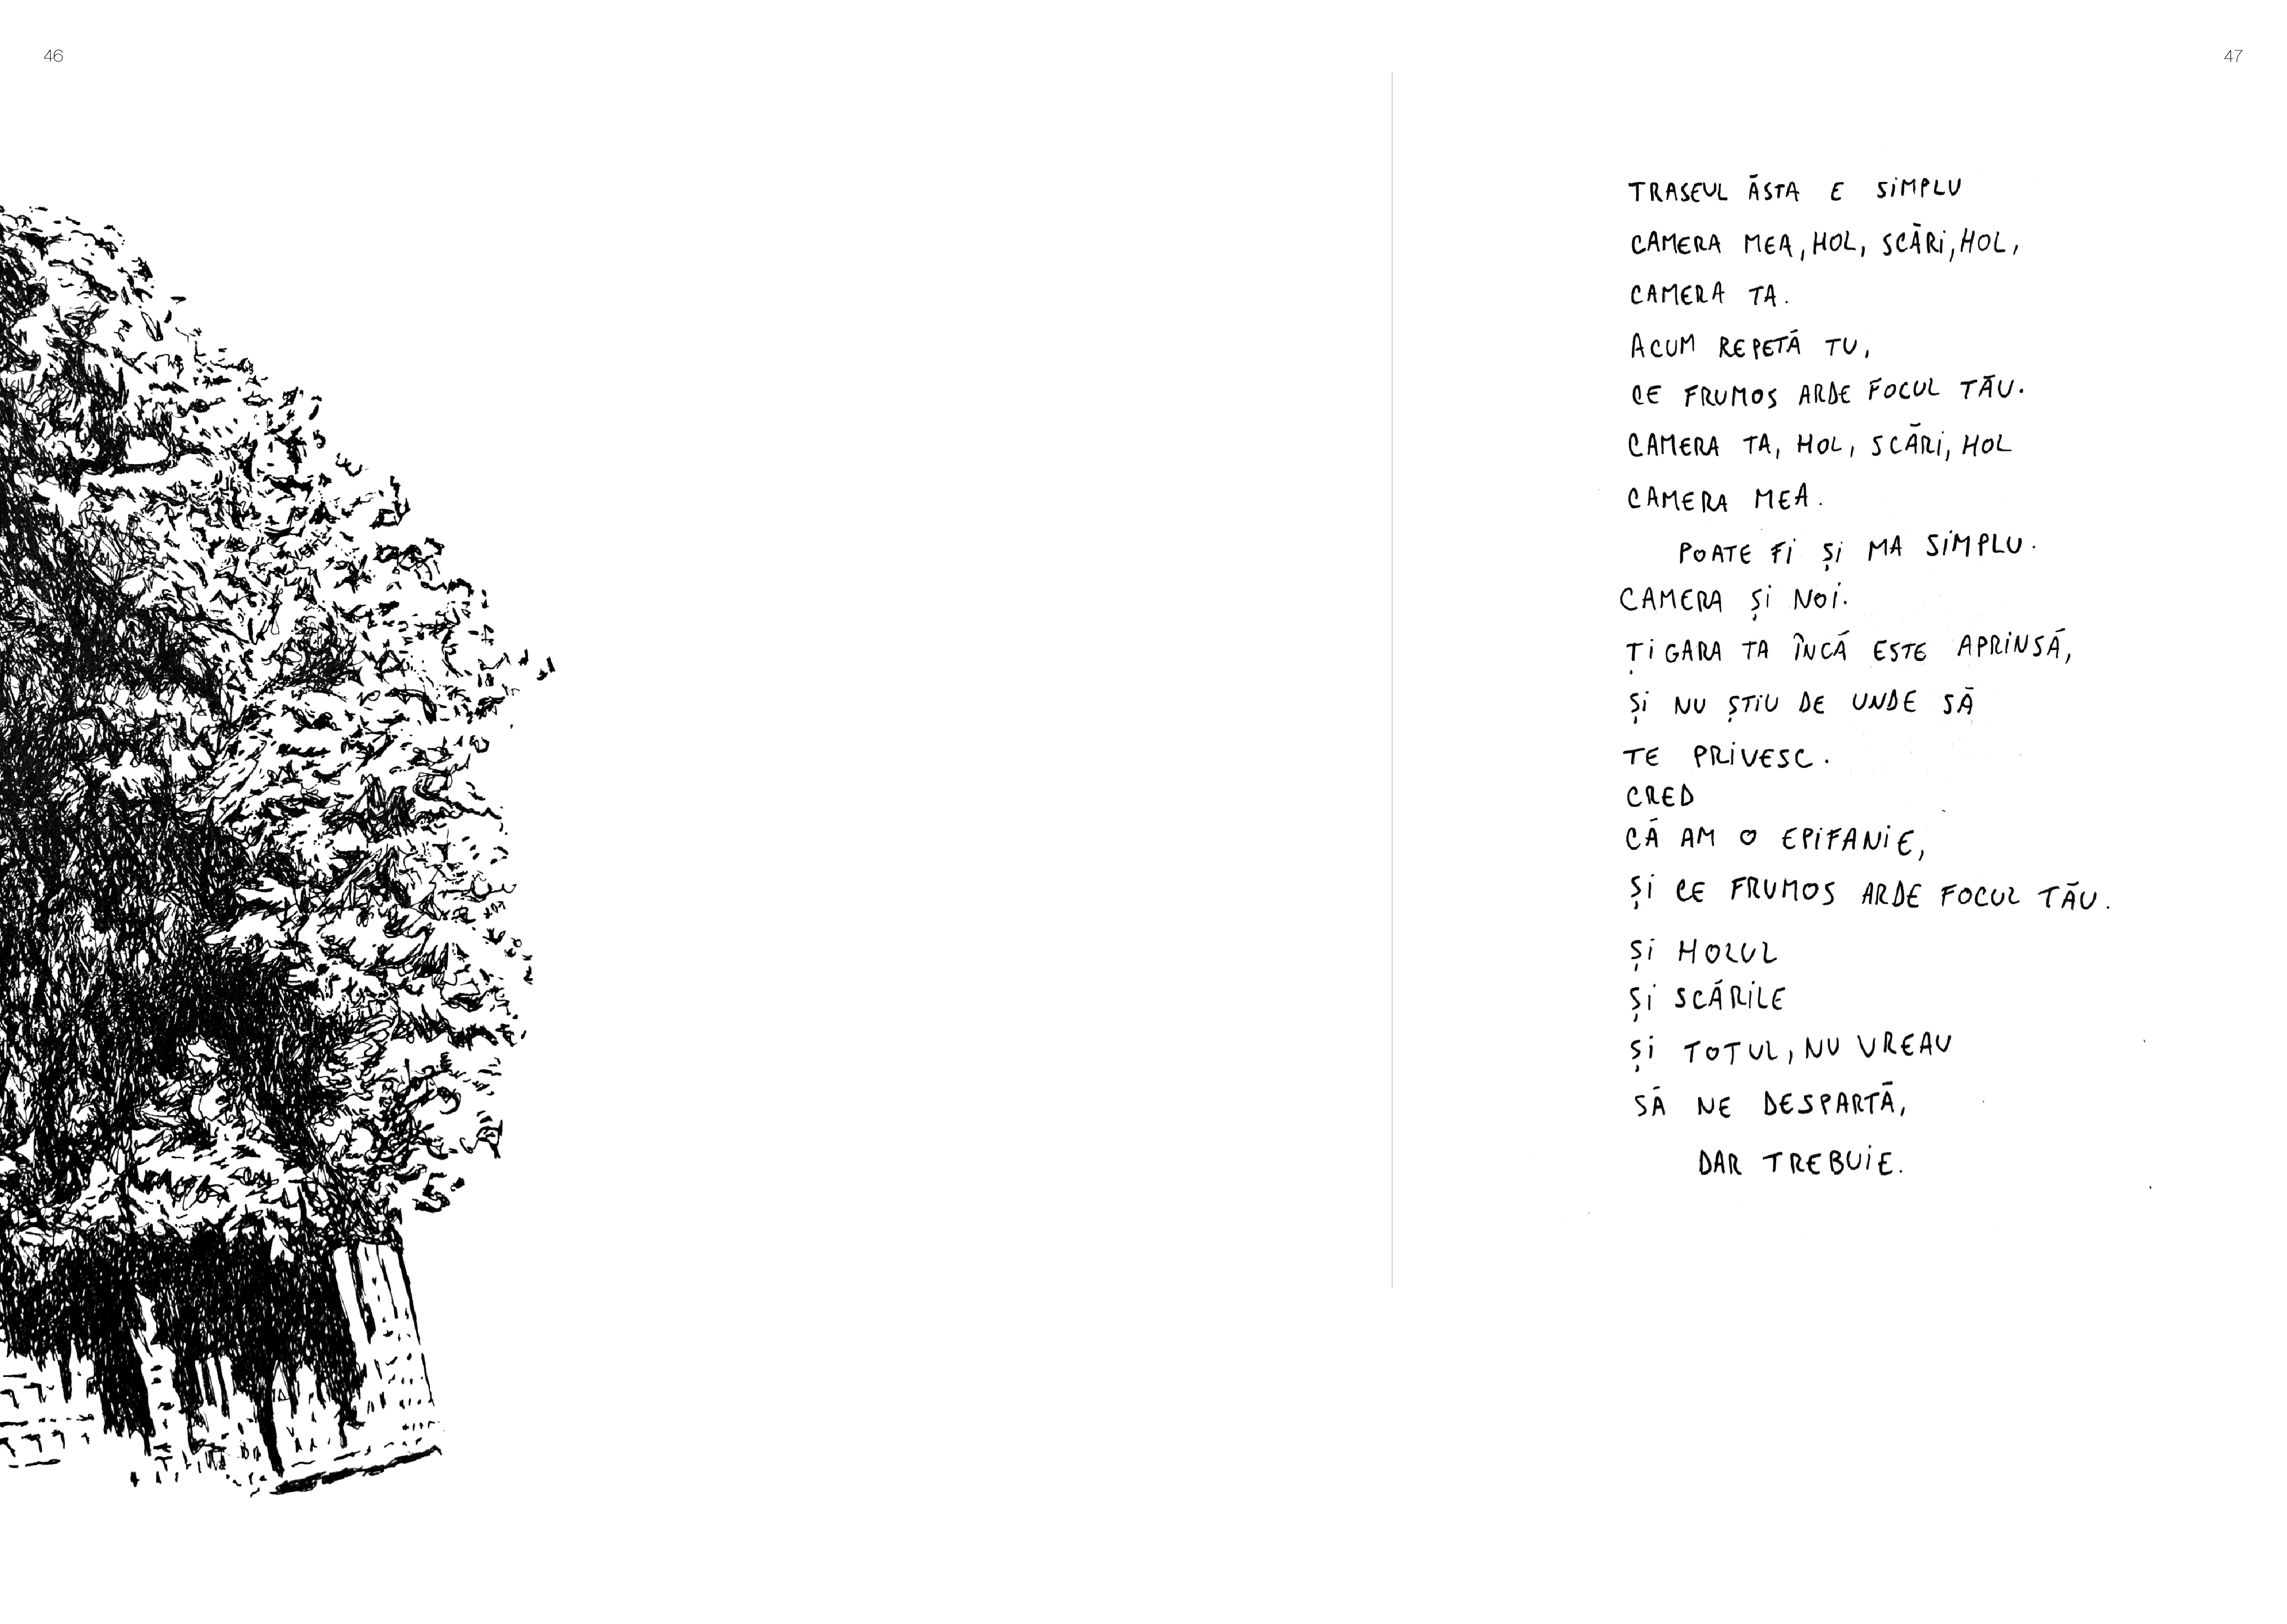 46
47
TRASEUL ĂSTA E SiMPLU
CAMERA MEA, HOL, SCĂRi, HOL,
CAMERA TA.
ACUM REPETĂ TU,
CE FRUMOS ARDE FOCUL TĂU.
CAMERA TA, HOL, SCĂRi, HOL
CAMERA MEA.
POATE Fi Și MA SiMPLU.
CAMERA Și NOi.
ȚiGARA TA ÎNCĂ ESTE APRiNSĂ,
Și NU ȘTiU DE UNDE SĂ
TE PRiVESC.
CRED
CĂ AM O EPiFANiE,
Și CE FRUMOS ARDE FOCUL TĂU.
Și HOLUL
Și SCĂRiLE
Și TOTUL, NU VREAU
SĂ NE DESPARTĂ,
DAR TREBUiE.